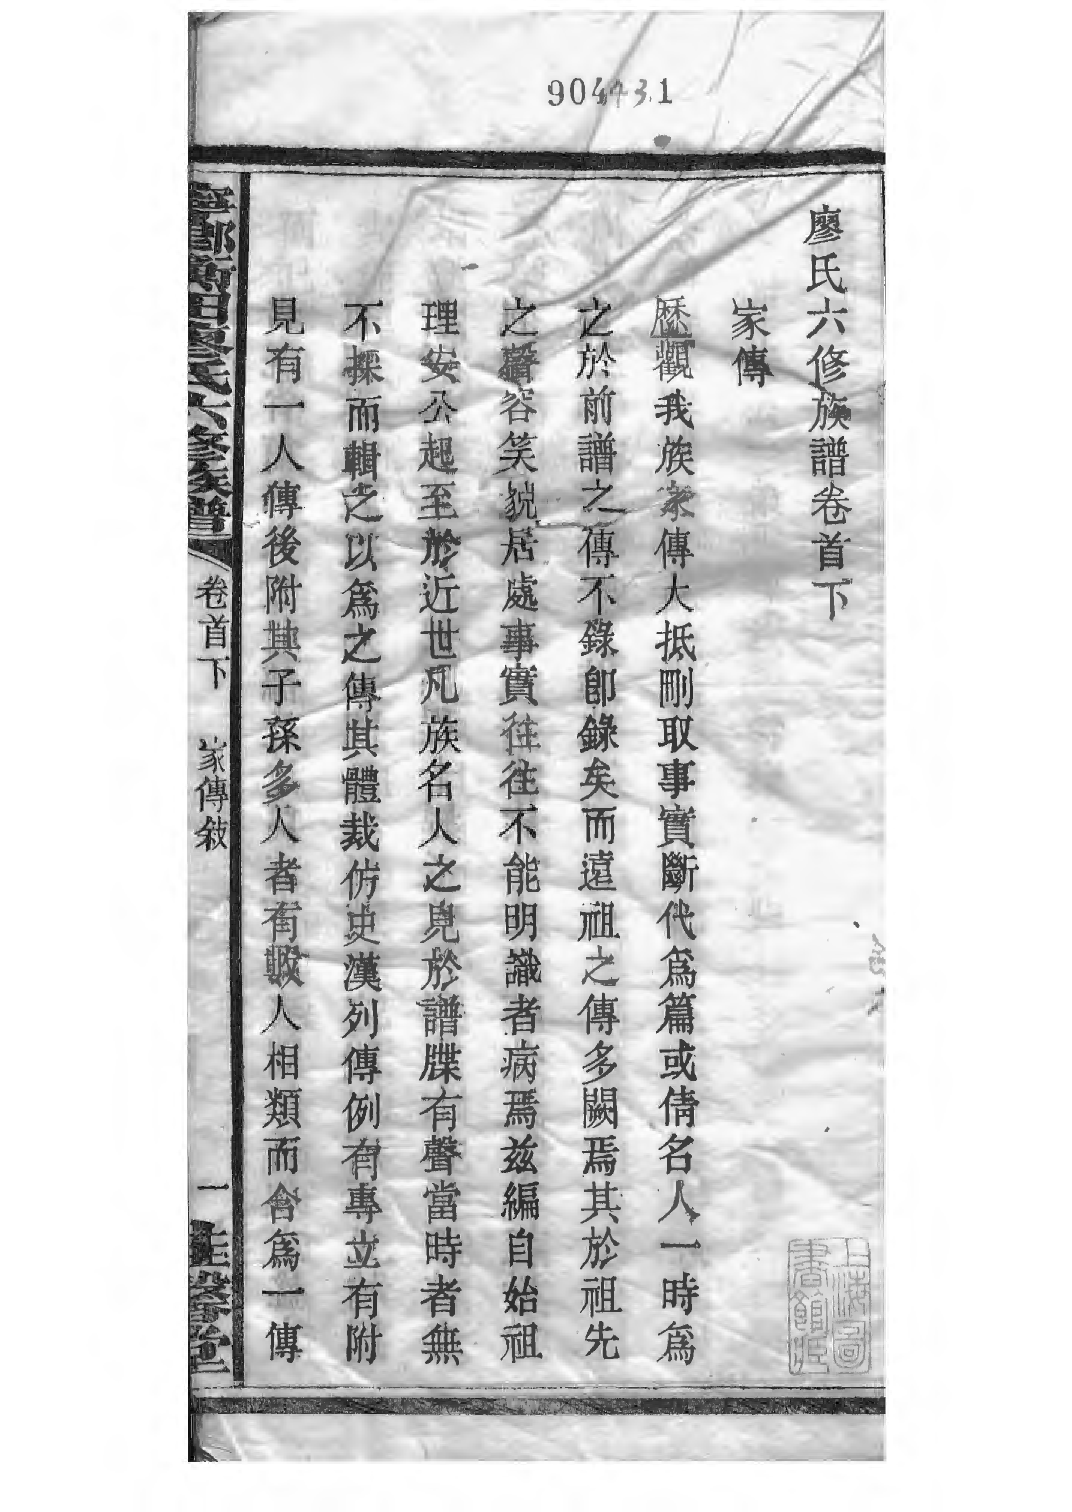 904431
廖氏六修族譜卷首下
家傳
歷觀我族家傳大抵刪取事實斷代爲篇或倩名人一時爲
之於前譜之傳不錄卽錄矣而遠祖之傳多闕焉其於祖先
之聲容笑貌居處事實往往不能明識者病焉茲編自始祖
理安公起至於近世凡族名人之見於譜牒有聲當時者無
不採而輯之以爲之傳其體裁仿史漢列傳例有專立有附
見有一人傳後附其子孫多人者有數人相類而合爲一傳
寧鄉衡田廖氏六修族譜
卷首下
家傳敘
一
桂馨堂
上海圖書館藏